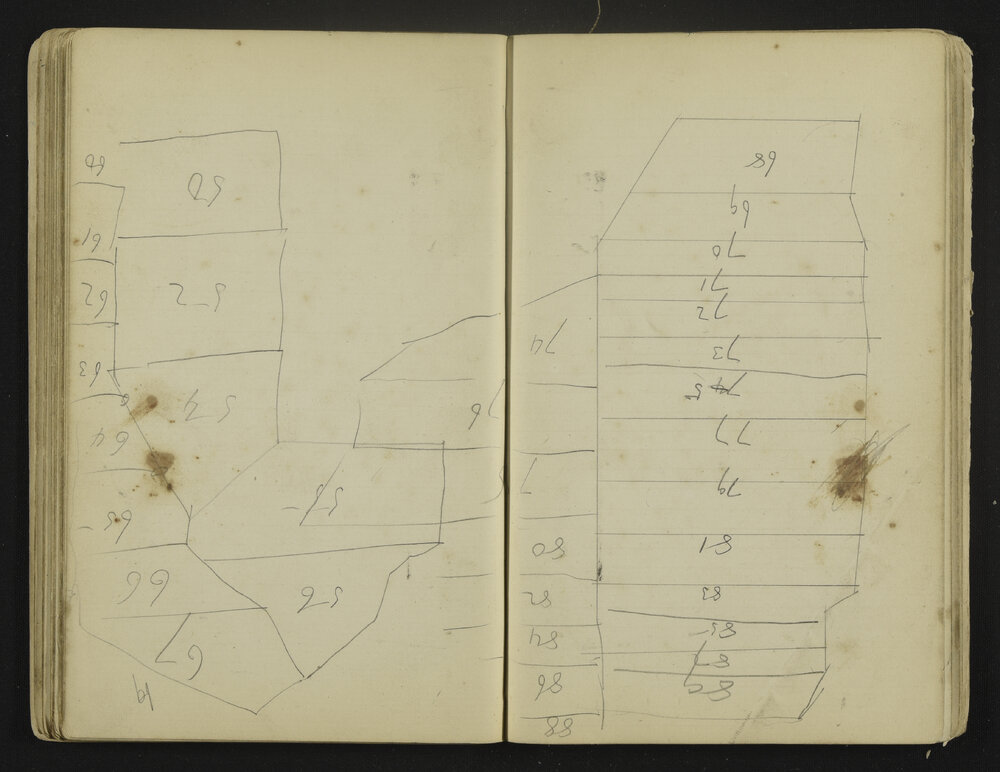 50
61
52
62
63
54
64
55
65
66
56
67
68
69
70
71
72
73
74
75
76
77
79
80
81
82
83
84
85
86
87
89
88